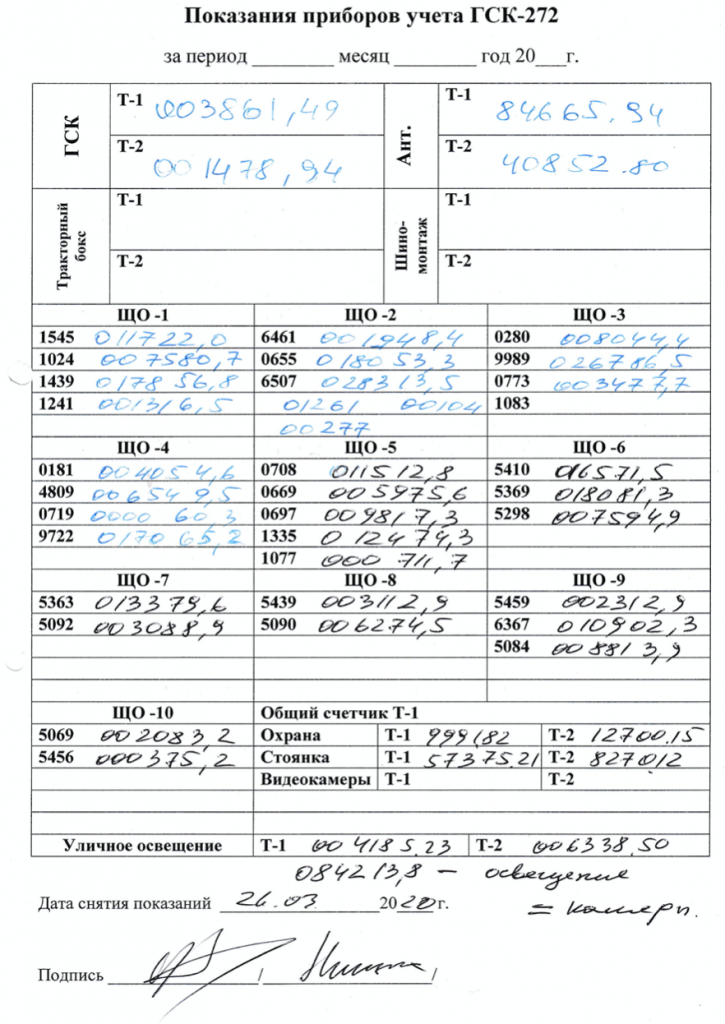 Показания приборов учета ГСК-272
за период ________ месяц ________ год 20___г.
ГСК Т-1 003861,49 Ант. Т-1 84665.94
Т-2 001478,94 Т-2 40852.80
Тракторный бокс Т-1 Шино-монтаж Т-1
Т-2 Т-2
ЩО -1 ЩО -2 ЩО -3
1545 011722,0 6461 001948,4 0280 008044,4
1024 007580,7 0655 018053,3 9989 026786,5
1439 017856,8 6507 028313,5 0773 003477,7
1241 001316,5 01261 00104 1083
00277
ЩО -4 ЩО -5 ЩО -6
0181 004054,6 0708 011512,8 5410 016571,5
4809 006549,5 0669 005975,6 5369 018081,3
0719 0000 60,3 0697 009817,3 5298 007594,9
9722 017065,2 1335 012474,3
1077 000711,7
ЩО -7 ЩО -8 ЩО -9
5363 013379,6 5439 003112,9 5459 002312,9
5092 003088,9 5090 006274,5 6367 010902,3
5084 008813,9
ЩО -10 Общий счетчик Т-1
5069 002083,2 Охрана Т-1 9991,82 Т-2 12700.15
5456 000375,2 Стоянка Т-1 57375.21 Т-2 8270,12
Видеокамеры Т-1 Т-2
Уличное освещение Т-1 004185.23 Т-2 006338.50
084213,8 – освещение
Дата снятия показаний 26.03 2020г. = камеры.
Подпись ____________/____________/